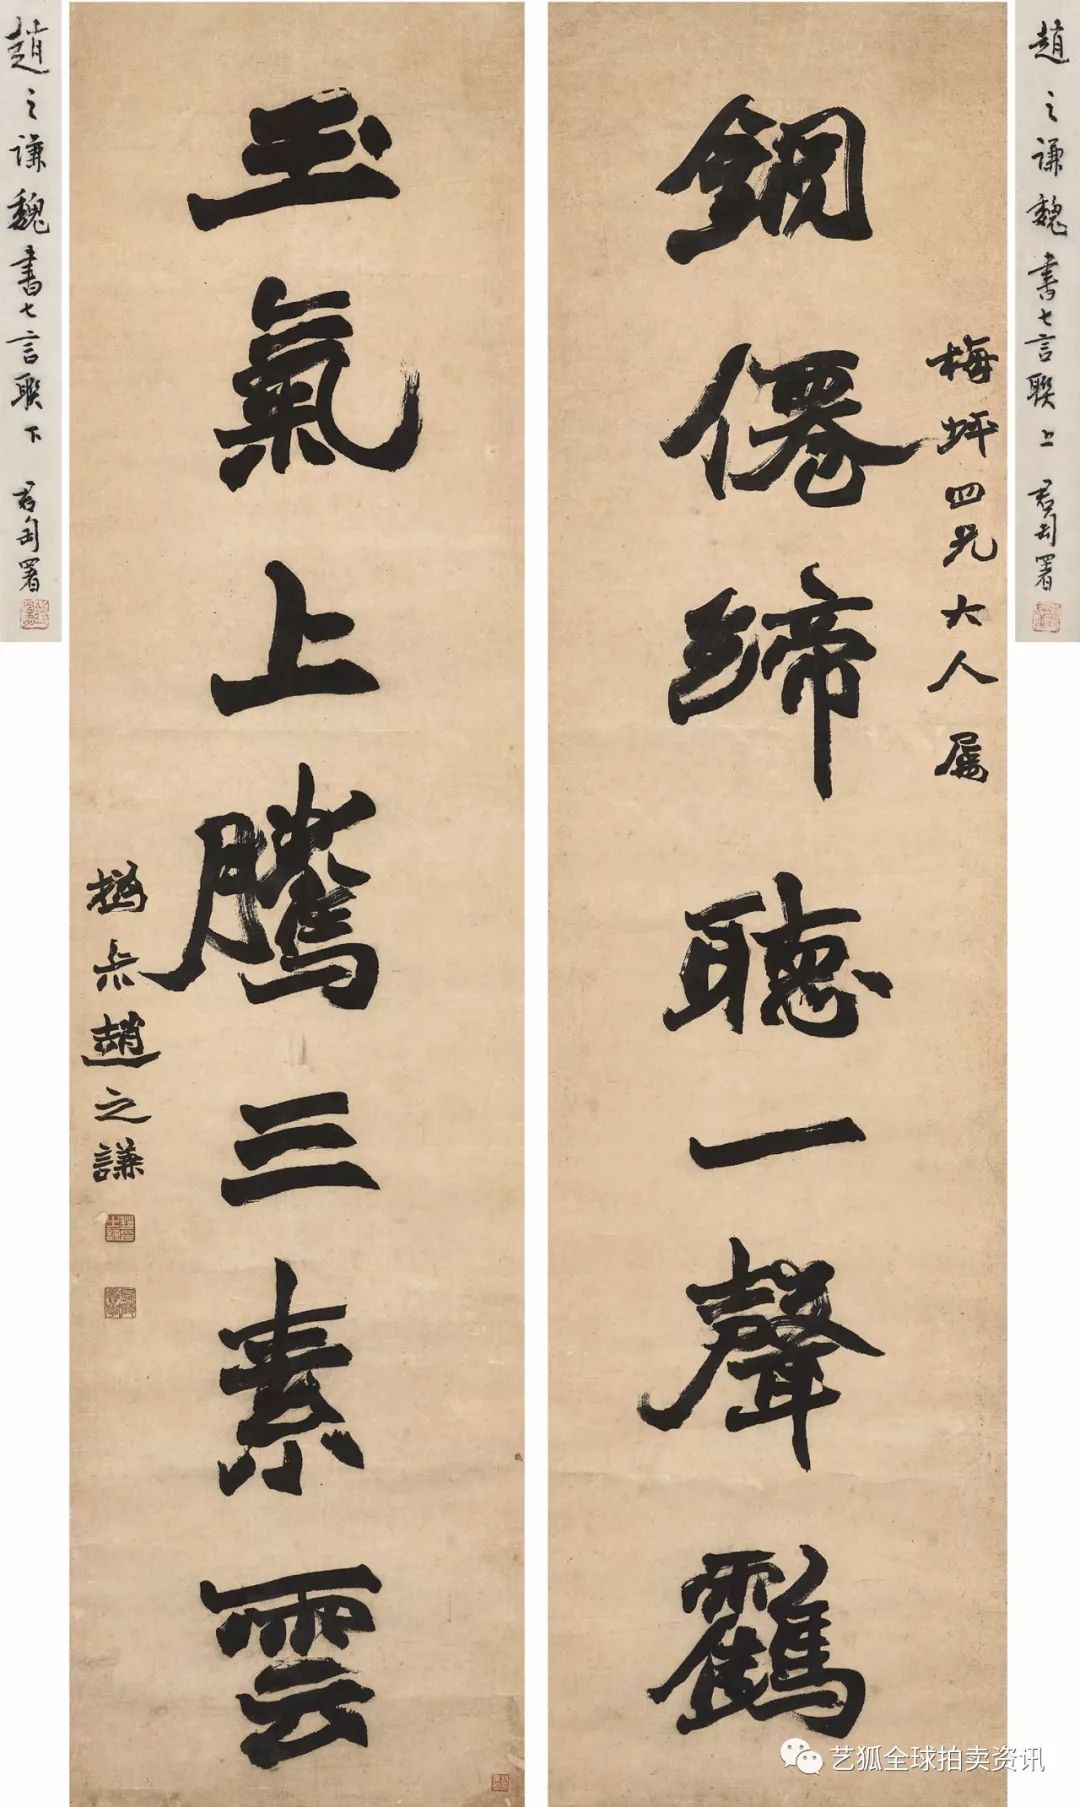 趙之謙魏書七言聯上 君匋署
梅坪四兄大人屬
銅僊諦聽一聲鶴
玉氣上騰三素雲
撝叔趙之謙
趙之謙魏書七言聯下 君匋署
艺狐全球拍卖资讯